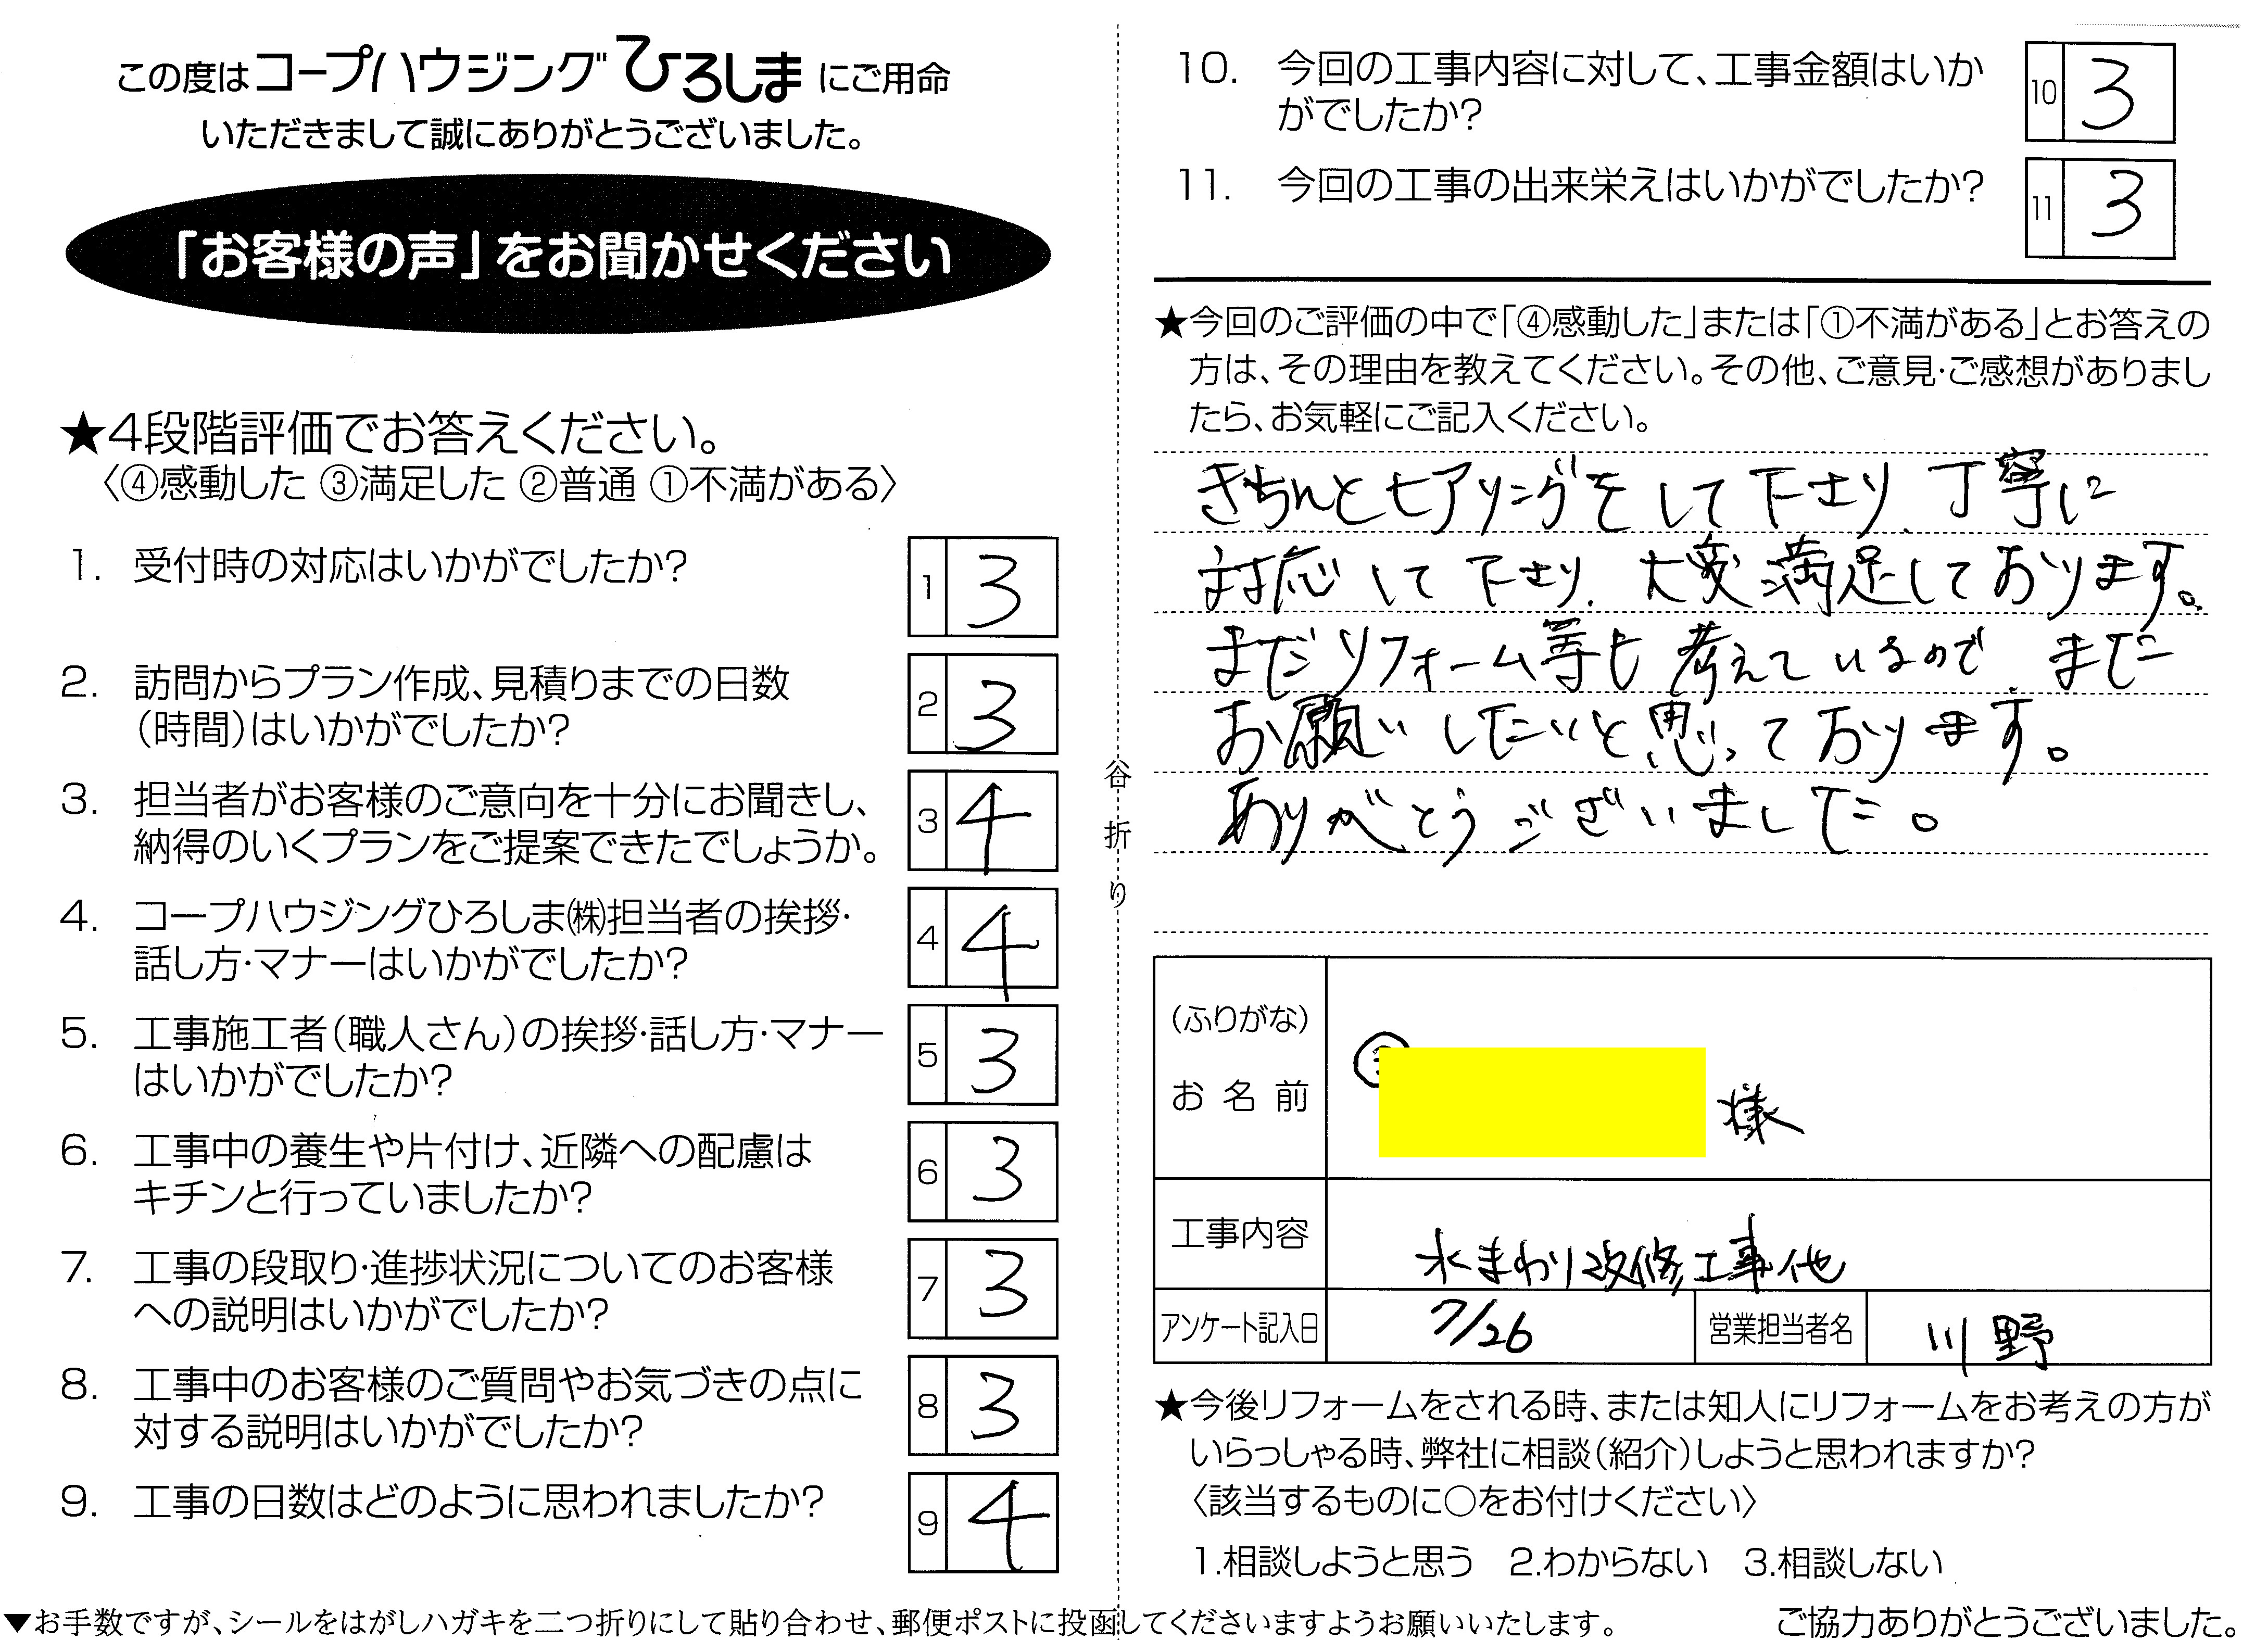 この度はコープハウジングひろしまにご用命
いただきまして誠にありがとうございました。
「お客様の声」をお聞かせください
★4段階評価でお答えください。
〈④感動した ③満足した ②普通 ①不満がある〉
1. 受付時の対応はいかがでしたか? 1 3
2. 訪問からプラン作成、見積りまでの日数
（時間）はいかがでしたか? 2 3
3. 担当者がお客様のご意向を十分にお聞きし、
納得のいくプランをご提案できたでしょうか。 3 4
4. コープハウジングひろしま㈱担当者の挨拶・
話し方・マナーはいかがでしたか? 4 4
5. 工事施工者（職人さん）の挨拶・話し方・マナー
はいかがでしたか? 5 3
6. 工事中の養生や片付け、近隣への配慮は
キチンと行っていましたか? 6 3
7. 工事の段取り・進捗状況についてのお客様
への説明はいかがでしたか? 7 3
8. 工事中のお客様のご質問やお気づきの点に
対する説明はいかがでしたか? 8 3
9. 工事の日数はどのように思われましたか? 9 4
谷折り
10. 今回の工事内容に対して、工事金額はいか
がでしたか? 10 3
11. 今回の工事の出来栄えはいかがでしたか? 11 3
★今回のご評価の中で「④感動した」または「①不満がある」とお答えの
方は、その理由を教えてください。その他、ご意見・ご感想がありまし
たら、お気軽にご記入ください。
きちんとヒアリングをして下さり、丁寧に
対応して下さり、大変満足しております。
まだリフォーム等も考えているので、また
お願いしたいと思っております。
ありがとうございました。
（ふりがな）
お名前 様
工事内容 水まわり改修工事他
アンケート記入日 7/26 営業担当者名 川野
★今後リフォームをされる時、または知人にリフォームをお考えの方が
いらっしゃる時、弊社に相談（紹介）しようと思われますか?
〈該当するものに○をお付けください〉
1.相談しようと思う 2.わからない 3.相談しない
▼お手数ですが、シールをはがしハガキを二つ折りにして貼り合わせ、郵便ポストに投函してくださいますようお願いいたします。
ご協力ありがとうございました。